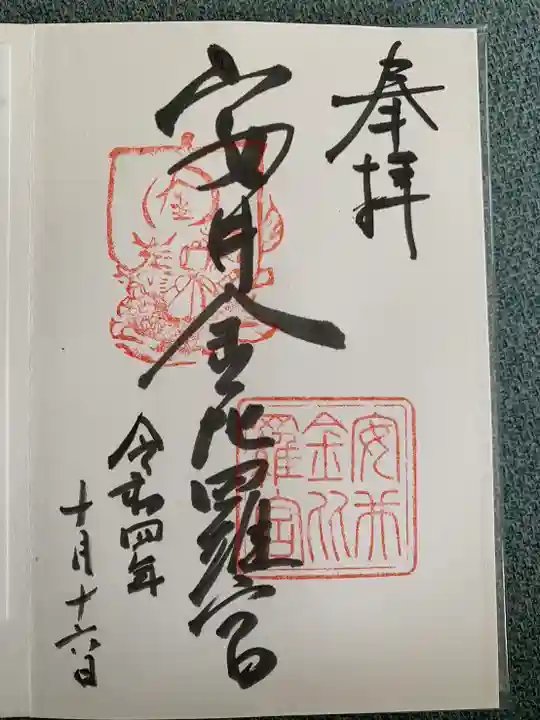 奉拝
安井金比羅宮
令和四年
十月十六日
安井
金比
羅宮
金